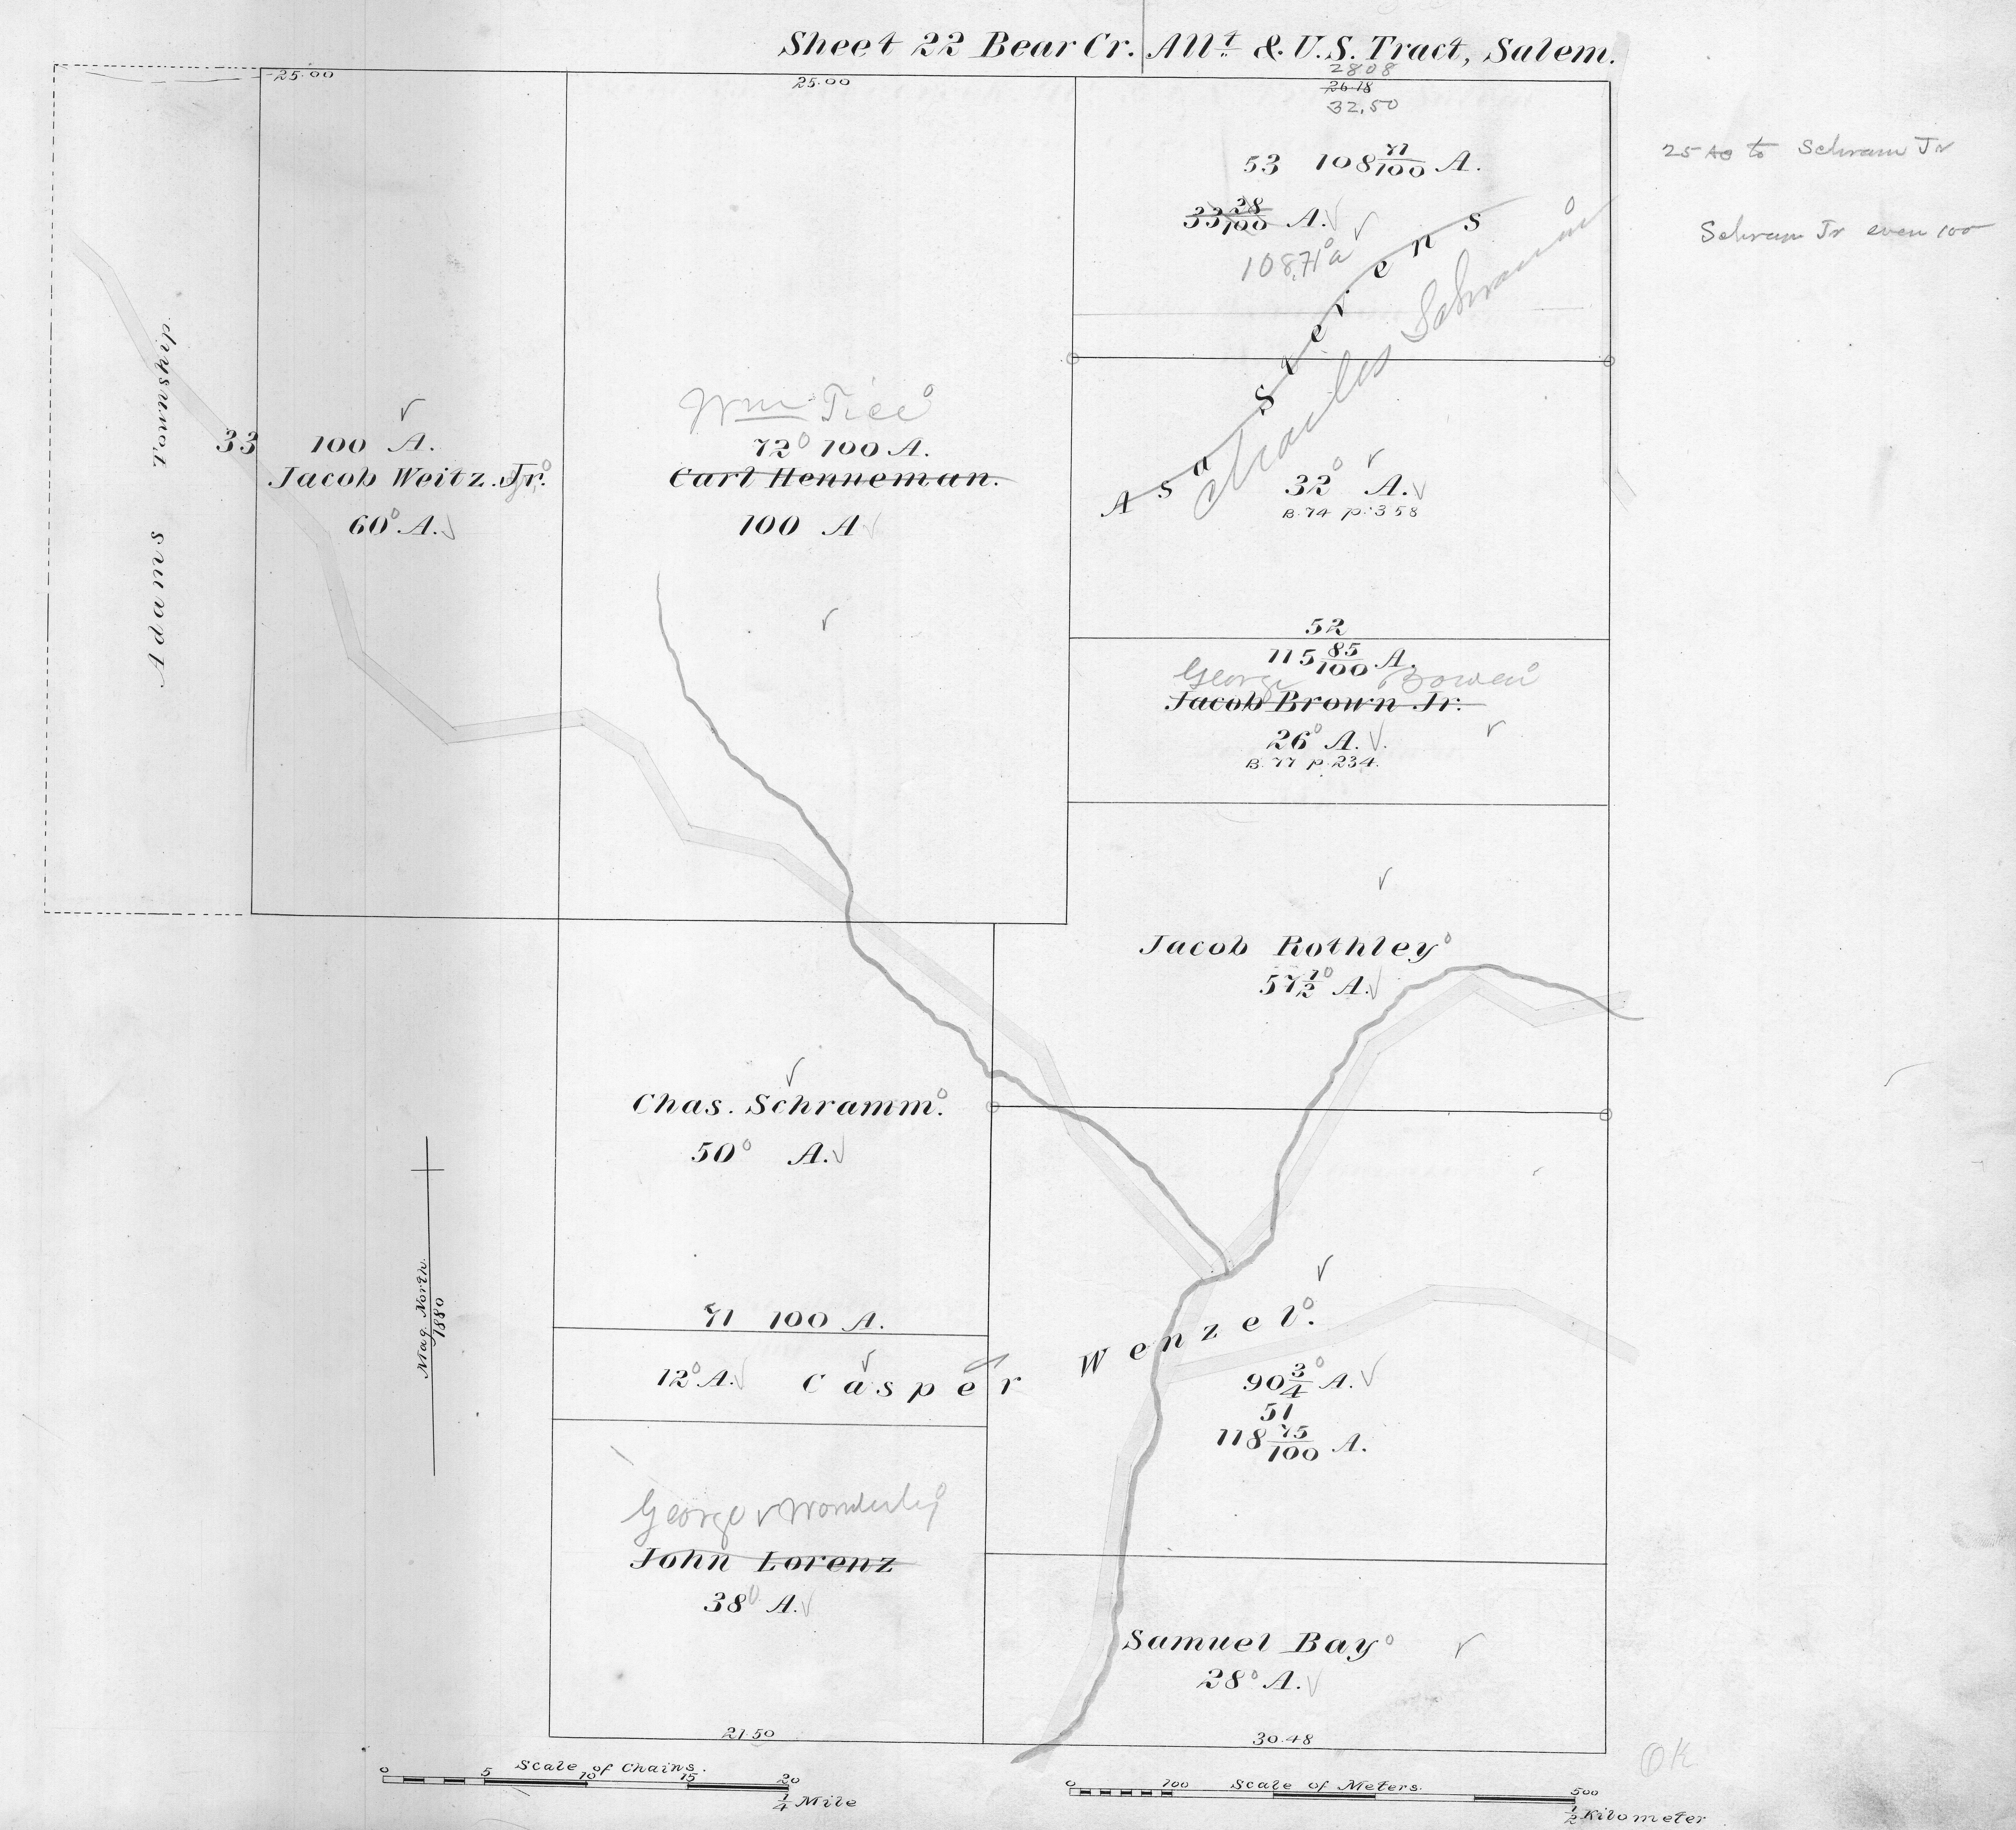 Sheet 22 Bear Cr. All.t & U.S. Tract, Salem.
25.00
25.00
2808
26.18
32,50
53 108 71/100 A.
33 28/100 A.
108,71 a
25 Ac to Schram Jr
Schram Jr even 100
Asa Sterens
Charles Schramm
Adams Township.
33 100 A.
Jacob Weitz. Jr.
60 A.
Wm Tice
72 100 A.
Carl Henneman.
100 A
32 A.
B. 74 p. 358
52
115 85/100 A.
George Bowen
Jacob Brown Jr.
26 A.
B. 77 p. 234.
Jacob Rothley
57 1/2 A.
Chas. Schramm.
50 A.
71 100 A.
12 A.
Casper Wenzel.
90 3/4 A.
51
118 75/100 A.
Mag. North.
1880
George Wonderly
John Lorenz
38 A.
Samuel Bay
28 A.
21.50
30.48
OK
Scale of Chains.
0 5 10 15 20
1/4 Mile
Scale of Meters.
0 100 500
1/2 Kilometer